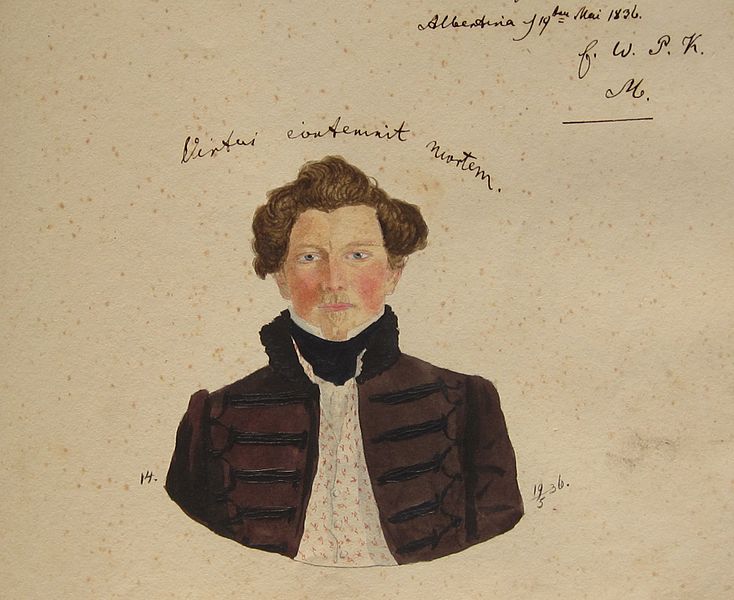 Albertina f 19ten Mai 1836.
f. W. P. K.
M.
Virtus contemnit mortem.
14.
19/5 36.